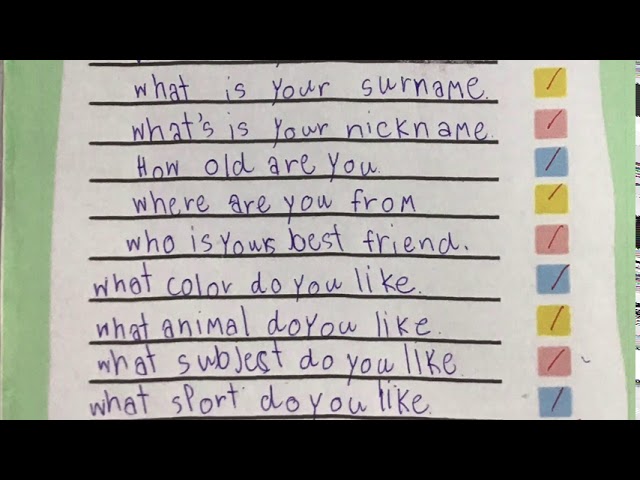 what is your surname.
what's is your nickname.
How old are you.
where are you from
who is yours best friend.
what color do you like.
what animal do you like.
what subjest do you like.
what sport do you like.